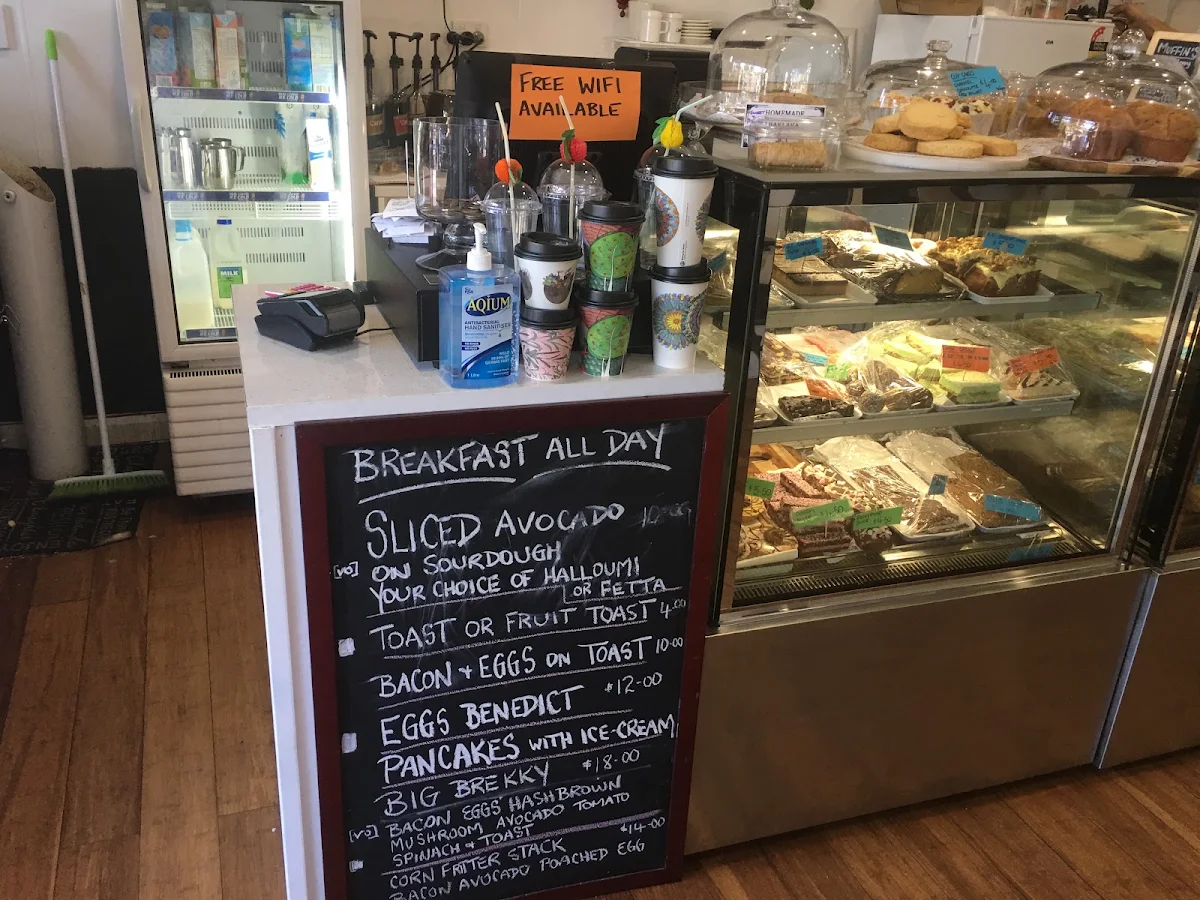 FREE WIFI
AVAILABLE
HOMEMADE
MUFFIN'S
MILK
AQIUM
ANTIBACTERIAL
HAND SANITISER
BREAKFAST ALL DAY
SLICED AVOCADO 10.00
[VO] ON SOURDOUGH
YOUR CHOICE OF HALLOUMI
OR FETTA
TOAST OR FRUIT TOAST 4.00
BACON + EGGS ON TOAST 10.00
EGGS BENEDICT $12-00
PANCAKES WITH ICE-CREAM
BIG BREKKY $18-00
[VO] BACON EGGS HASHBROWN
MUSHROOM AVOCADO TOMATO
SPINACH + TOAST
CORN FRITTER STACK $14-00
BACON AVOCADO POACHED EGG